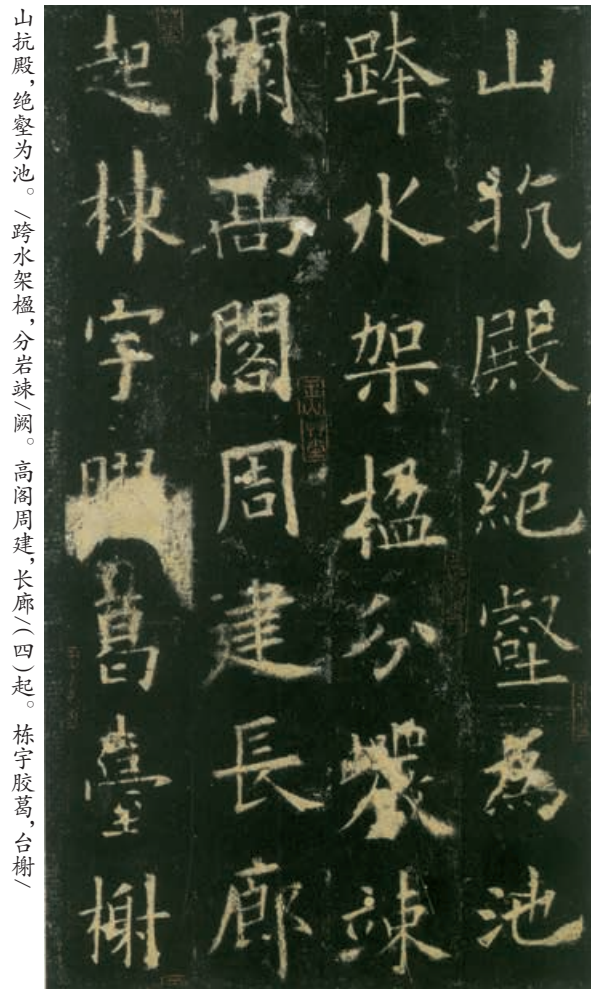 山抗殿絕壑為池
跨水架楹分巖竦
闕高閣周建長廊
起棟宇葛臺榭
山抗殿，绝壑为池。/跨水架楹，分岩竦/阙。高阁周建，长廊/（四）起。栋宇胶葛，台榭/